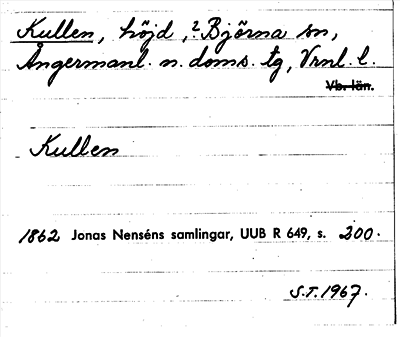 Kullen, höjd, ? Björna sn,
Ångermanl. n. doms. tg, Vrnl. l.
Vb. län.
Kullen
1862 Jonas Nenséns samlingar, UUB R 649, s. 200.
S.T. 1967.